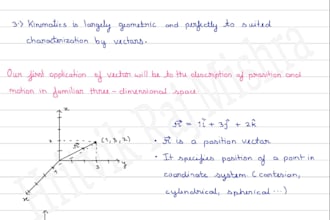 3:) Kinmatics is largely geometric and perfectly to suited
characterization by vectors.
Our first application of vector will be to the description of position and
motion in familiar three-dimensional space.
z
(1, 3, 2)
y
3
x
r⃗ = 1î + 3ĵ + 2k̂
• r⃗ is a position vector
• It specifies position of a point in
coordinate system (cartesian,
cylindrical, spherical ...)